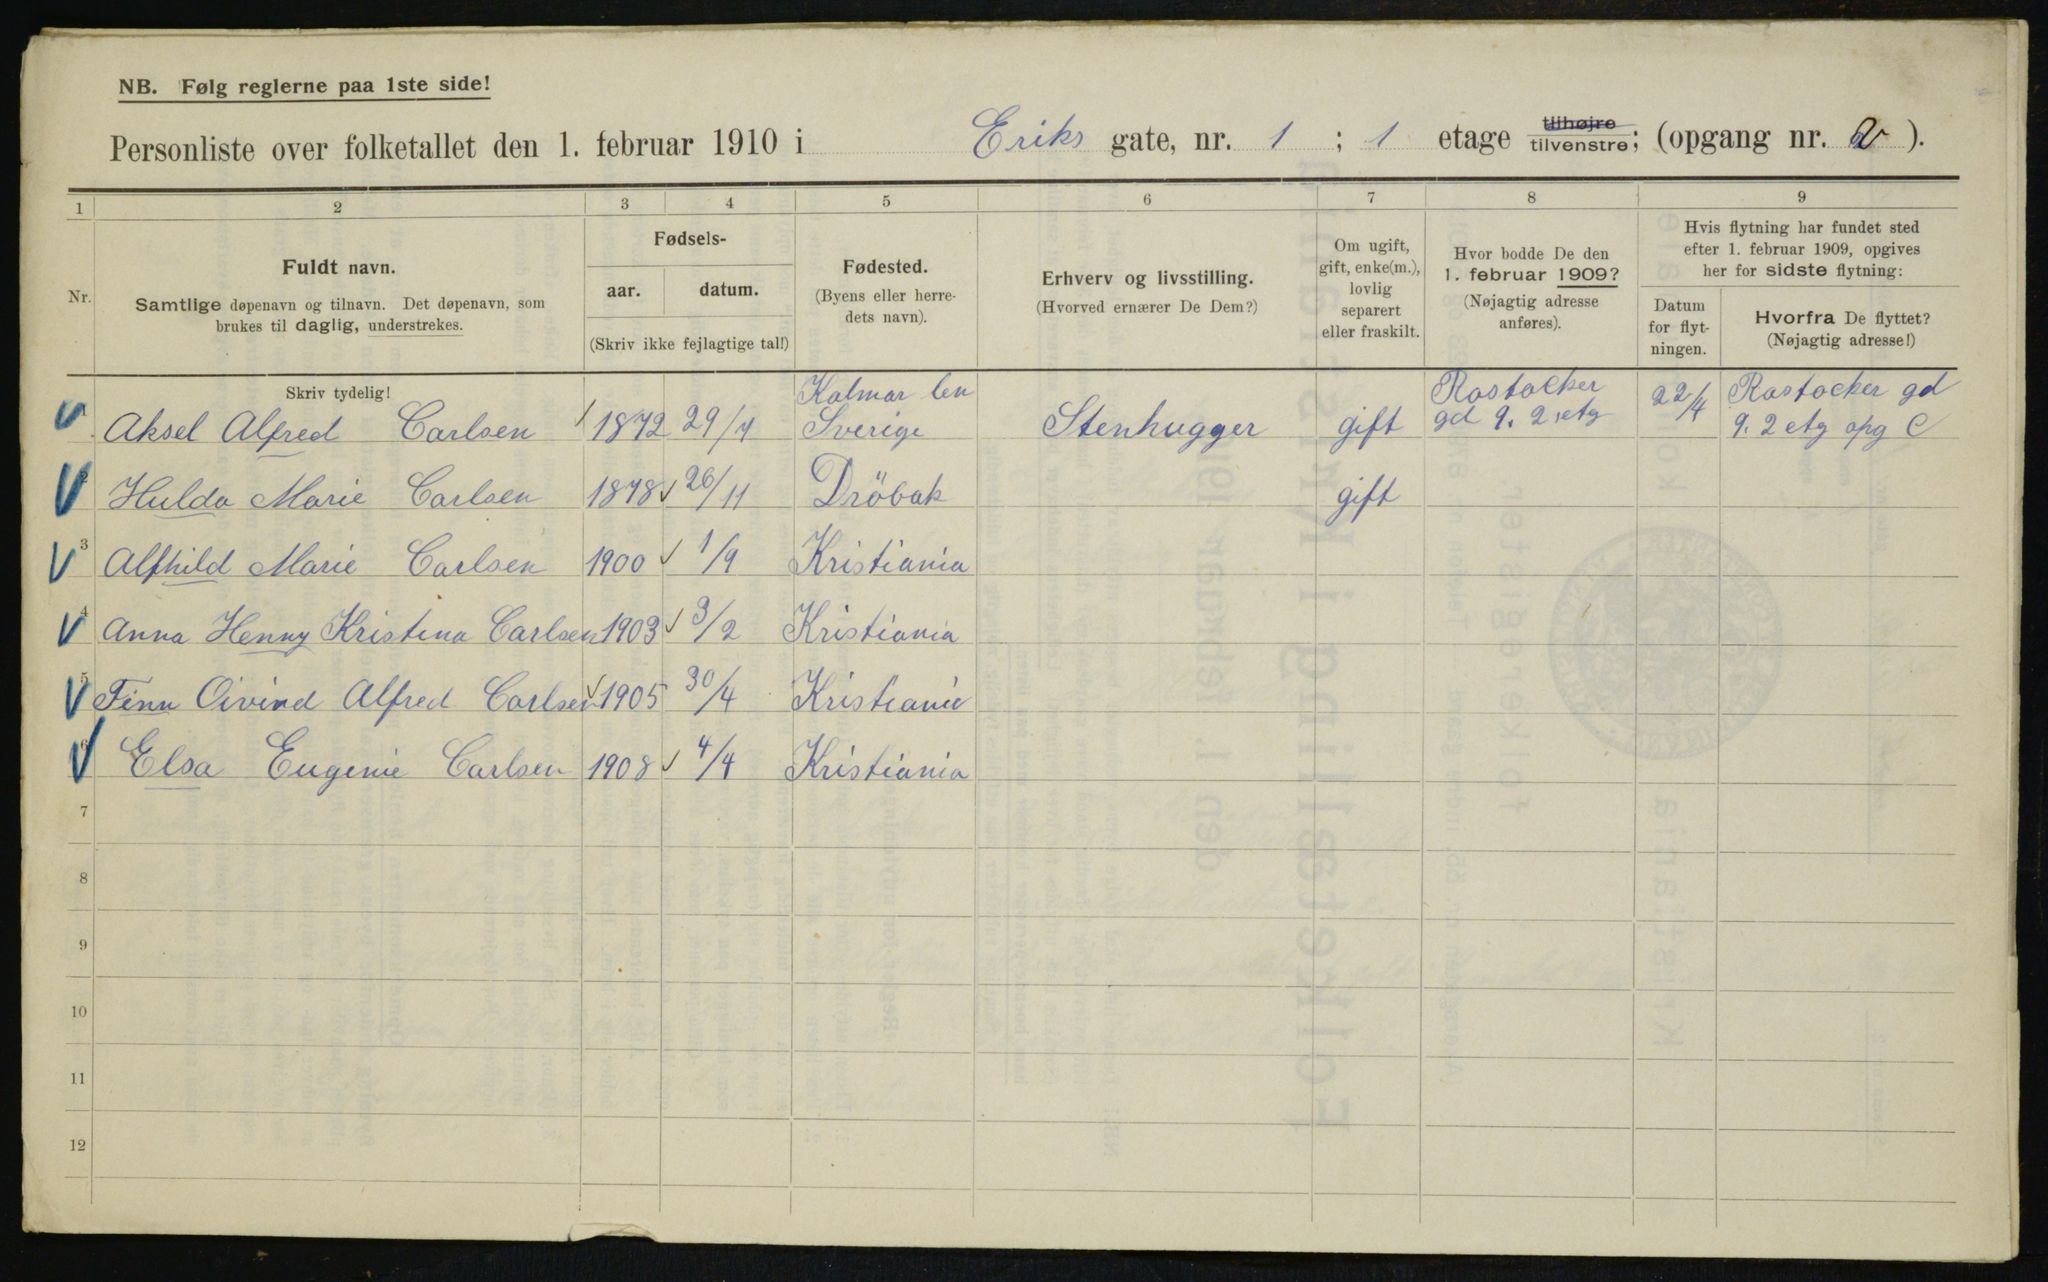 NB. Følg reglerne paa 1ste side!
Personliste over folketallet den 1. februar 1910 i Eriks gate, nr. 1 ; 1 etage tilhøjre tilvenstre; (opgang nr. 2 ).
1 2 3 4 5 6 7 8 9
Nr.
Fuldt navn.
Samtlige døpenavn og tilnavn. Det døpenavn, som
brukes til daglig, understrekes.
Fødsels-
aar. datum.
(Skriv ikke fejlagtige tal!)
Fødested.
(Byens eller herre-
dets navn).
Erhverv og livsstilling.
(Hvorved ernærer De Dem?)
Om ugift,
gift, enke(m.),
lovlig
separert
eller fraskilt.
Hvor bodde De den
1. februar 1909?
(Nøjagtig adresse
anføres).
Hvis flytning har fundet sted
efter 1. februar 1909, opgives
her for sidste flytning:
Datum
for flyt-
ningen.
Hvorfra De flyttet?
(Nøjagtig adresse!)
Skriv tydelig!
1 Aksel Alfred Carlsen 1872 29/7 Kalmar len Sverige Stenhugger gift Rostocker gd 9. 2. etg 22/4 Rostocker gd 9. 2 etg opg C
2 Hulda Marie Carlsen 1878 26/11 Dröbak gift
3 Alfhild Marie Carlsen 1900 1/9 Kristiania
4 Anna Henny Kristina Carlsen 1903 3/2 Kristiania
5 Finn Oivind Alfred Carlsen 1905 30/4 Kristiania
6 Elsa Eugenie Carlsen 1908 4/4 Kristiania
7
8
9
10
11
12